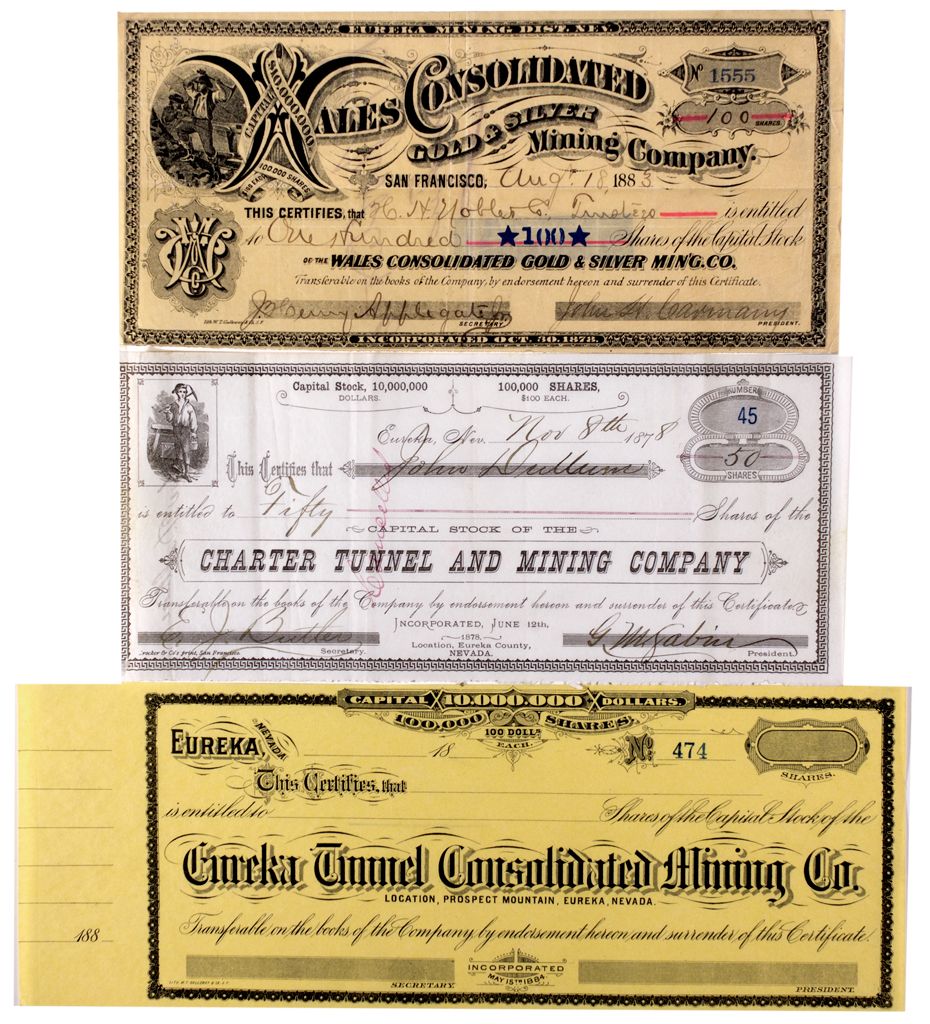 EUREKA MINING DIST. NEV.
CAPITAL $10,000,000.
100.000 SHARES
$100 EACH
WALES CONSOLIDATED
GOLD & SILVER
Mining Company.
No 1555
100
SHARES.
SAN FRANCISCO, Aug. 18 1883
THIS CERTIFIES, that H. N. Nobles Trustee is entitled
to One Hundred ★100★ Shares of the Capital Stock
OF THE WALES CONSOLIDATED GOLD & SILVER MIN'G. CO.
Transferable on the books of the Company, by endorsement hereon and surrender of this Certificate.
SECRETARY
John H. Carmany
PRESIDENT.
INCORPORATED OCT. 30, 1878.
Capital Stock, 10,000,000
DOLLARS.
100,000 SHARES,
$100 EACH.
NUMBER
45
50
SHARES
Eureka, Nev. Nov 8th 1878
This Certifies that John Dullum
is entitled to Fifty Shares of the
CAPITAL STOCK OF THE
CHARTER TUNNEL AND MINING COMPANY
Transferable on the books of the Company by endorsement hereon and surrender of this Certificate
E. J. Butler
Secretary.
INCORPORATED, JUNE 12th,
1878.
Location, Eureka County,
NEVADA.
President.
CAPITAL 10.000.000 DOLLARS.
100,000 SHARES,
100 DOLLS
EACH.
EUREKA, NEVADA
18
No 474
SHARES.
This Certifies, that
is entitled to Shares of the Capital Stock of the
Eureka Tunnel Consolidated Mining Co.
LOCATION, PROSPECT MOUNTAIN, EUREKA, NEVADA.
188
Transferable on the books of the Company by endorsement hereon and surrender of this Certificate.
INCORPORATED
MAY 15TH 1884.
SECRETARY
PRESIDENT.